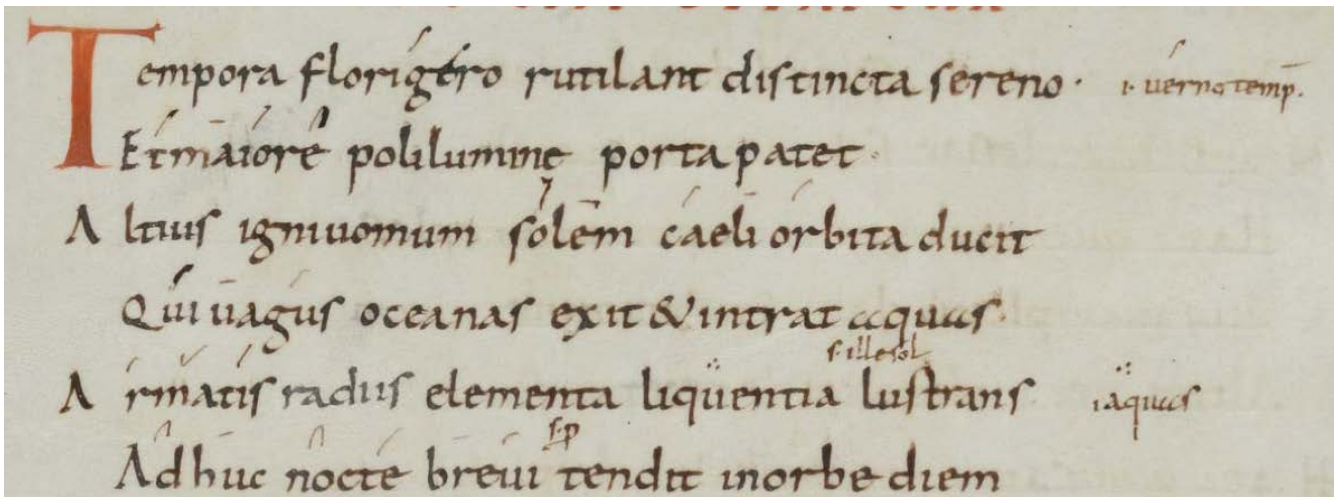 Tempora florigéro rutilant distincta sereno · .i. uérno temp̄.
Et maiore poli lumine porta patet ·
Altius igniuomum solem caeli orbita ducit
Qui uagus oceanas exit & intrat aquas ·
s. ille sol
Armatis radiis elementa liquentia lustrans .i. aquas
Adhuc nocte breui tendit in orbe diem